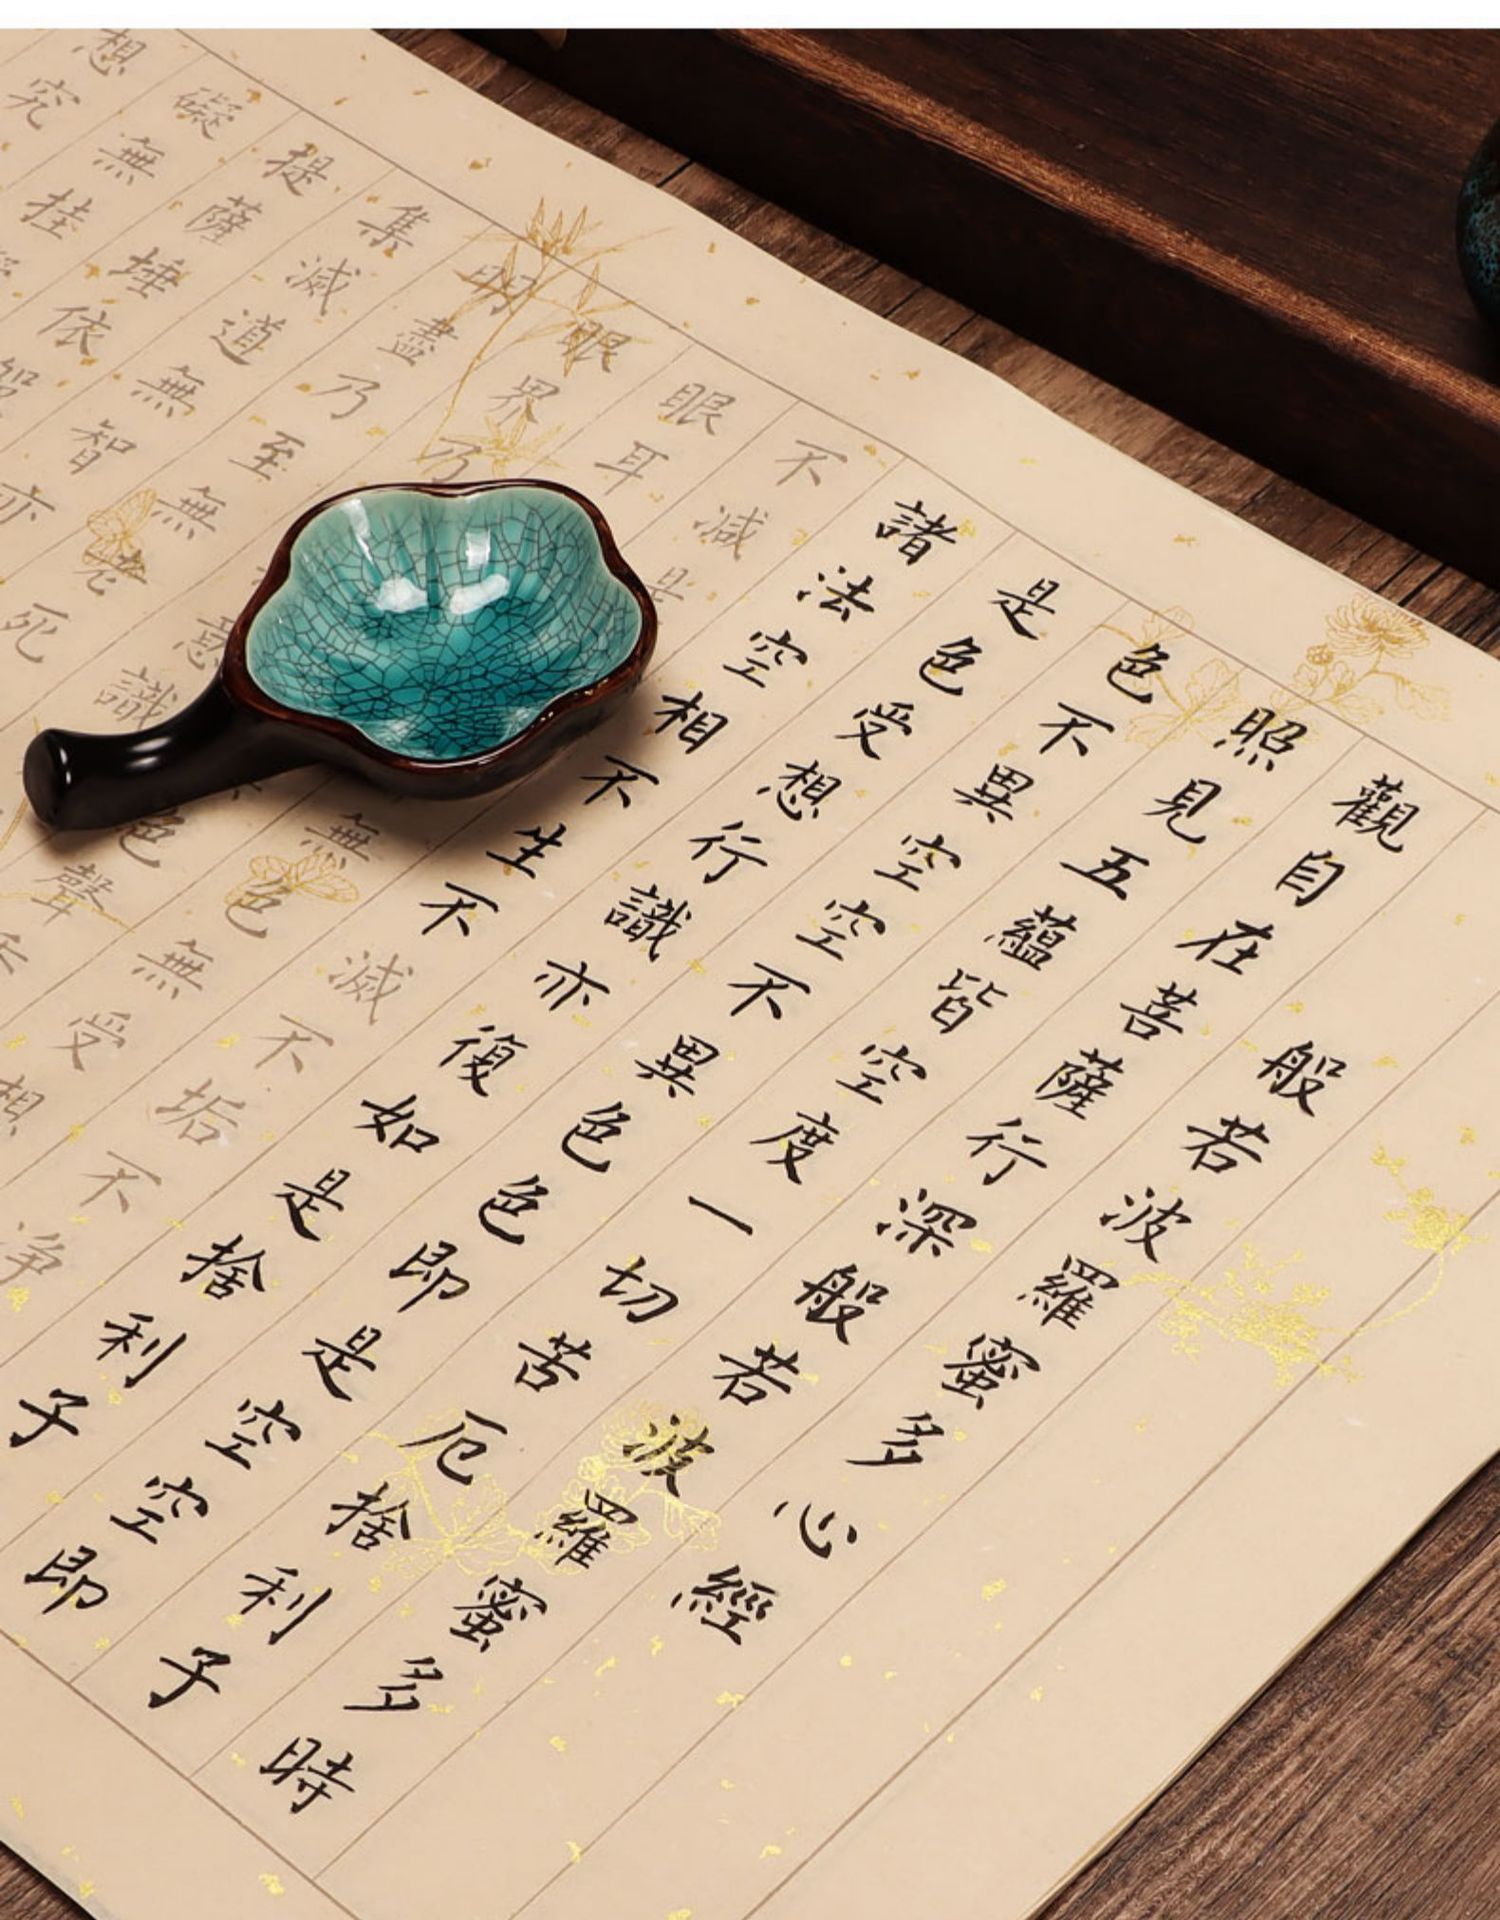 般若波羅蜜多心經
觀自在菩薩行深般若波羅蜜多時
照見五蘊皆空度一切苦厄捨利子
色不異空空不異色色即是空空即
是色受想行識亦復如是捨利子
諸法空相不生不滅不垢不净
不減 無色無受想
眼耳 色聲
眼界乃 意識
明盡乃至無老死
集滅道無智亦
提薩埵依
礙無挂
想究